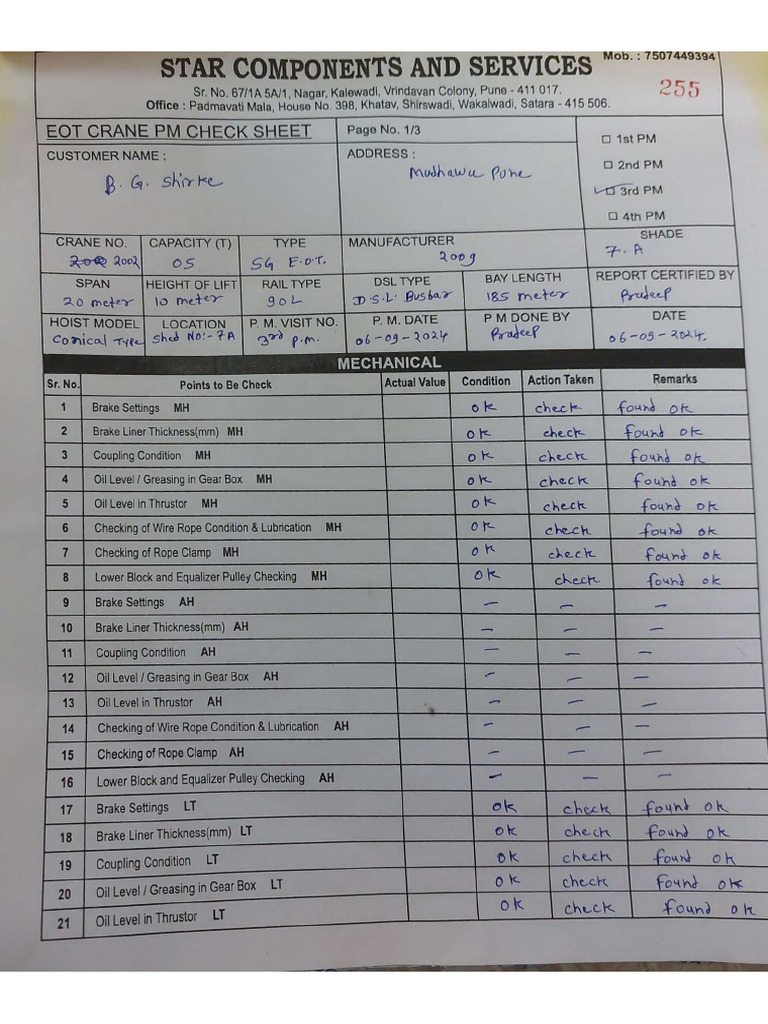 Mob. : 7507449394
STAR COMPONENTS AND SERVICES
255
Sr. No. 67/1A 5A/1, Nagar, Kalewadi, Vrindavan Colony, Pune - 411 017.
Office : Padmavati Mala, House No. 398, Khatav, Shirswadi, Wakalwadi, Satara - 415 506.
EOT CRANE PM CHECK SHEET
Page No. 1/3
1st PM
CUSTOMER NAME :
ADDRESS :
2nd PM
B. G. Shirke
Mudhawa Pune
3rd PM
4th PM
CRANE NO. CAPACITY (T) TYPE MANUFACTURER SHADE
2002 05 SG E.O.T. 2009 7.A
SPAN HEIGHT OF LIFT RAIL TYPE DSL TYPE BAY LENGTH REPORT CERTIFIED BY
20 meter 10 meter 90L D.S.L. Busbar 185 meter Pradeep
HOIST MODEL LOCATION P. M. VISIT NO. P. M. DATE P M DONE BY DATE
Conical Type Shed No:-7A 3rd P.m. 06-09-2024 Pradeep 06-09-2024.
MECHANICAL
Sr. No. Points to Be Check Actual Value Condition Action Taken Remarks
1 Brake Settings MH ok check found ok
2 Brake Liner Thickness(mm) MH ok check found ok
3 Coupling Condition MH ok check found ok
4 Oil Level / Greasing in Gear Box MH ok check found ok
5 Oil Level in Thrustor MH ok check found ok
6 Checking of Wire Rope Condition & Lubrication MH ok check found ok
7 Checking of Rope Clamp MH ok check found ok
8 Lower Block and Equalizer Pulley Checking MH ok check found ok
9 Brake Settings AH – – –
10 Brake Liner Thickness(mm) AH – – –
11 Coupling Condition AH – – –
12 Oil Level / Greasing in Gear Box AH – – –
13 Oil Level in Thrustor AH – – –
14 Checking of Wire Rope Condition & Lubrication AH – – –
15 Checking of Rope Clamp AH – – –
16 Lower Block and Equalizer Pulley Checking AH – – –
17 Brake Settings LT ok check found ok
18 Brake Liner Thickness(mm) LT ok check found ok
19 Coupling Condition LT ok check found ok
20 Oil Level / Greasing in Gear Box LT ok check found ok
21 Oil Level in Thrustor LT ok check found ok